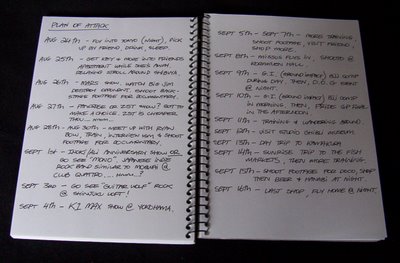 PLAN OF ATTACK
AUG 24th - FLY INTO TOKYO (NIGHT), PICK
UP BY FRIEND, DRINK, SLEEP.
AUG 25th - GET KEY & MOVE INTO FRIENDS
APARTMENT WHILE SHE'S AWAY.
RELAXING STROLL AROUND SHIBUYA.
AUG 26th - MARS SHOW, WATCH BIG JIM
DESTROY OPPONENT. SHOOT BACK-
STAGE FOOTAGE FOR DOCUMENTARY.
AUG 27th - PANCRASE OR ZST SHOW? GOT TO
MAKE A CHOICE, ZST IS CHEAPER
THO...HMM..?
AUG 28th - AUG 30th - MEET UP WITH RYAN
BOW, TRAIN, INTERVIEW HIM & SHOOT
FOOTAGE FOR DOCUMENTARY.
SEPT 1st - ANNIVERSARY SHOW OR
GO SEE "MONO", JAPANESE INDIE
ROCK BAND SIMILAR TO MOGWAI @
CLUB QUATTRO....HMM..?
SEPT 3rd - GO SEE "GUITAR WOLF" ROCK
@ SHINJUKU LOFT!
SEPT 4th - K1 MAX SHOW @ YOKOHAMA.
SEPT 5th - SEPT 7th - MORE TRAINING
SHOOT FOOTAGE, VISIT FRIEND,
SHOP MORE.
SEPT 8th - MISSUS FLIES IN, SHOOTO @
KORAKUEN HALL.
SEPT 9th - G.I. (GROUND IMPACT) BJJ COMP
DURING DAY, THEN, D.O.G EVENT
@ NIGHT.
SEPT 10th - G.I. (GROUND IMPACT) BJJ COMP
IN MORNING, THEN, PRIDE GP FINAL
IN THE AFTERNOON.
SEPT 11th - TRAINING & WANDERING AROUND
SEPT 12th - VISIT STUDIO GHIBLI MUSEUM
SEPT 13th - DAY TRIP TO KAMAKURA
SEPT 14th - SUNRISE TRIP TO THE FISH
MARKETS, THEN MORE TRAINING.
SEPT 15th - SHOOT FOOTAGE FOR DOCO, SHOP
THEN BEER & HANABI AT NIGHT
SEPT 16th - LAST DROP FLY HOME @ NIGHT.